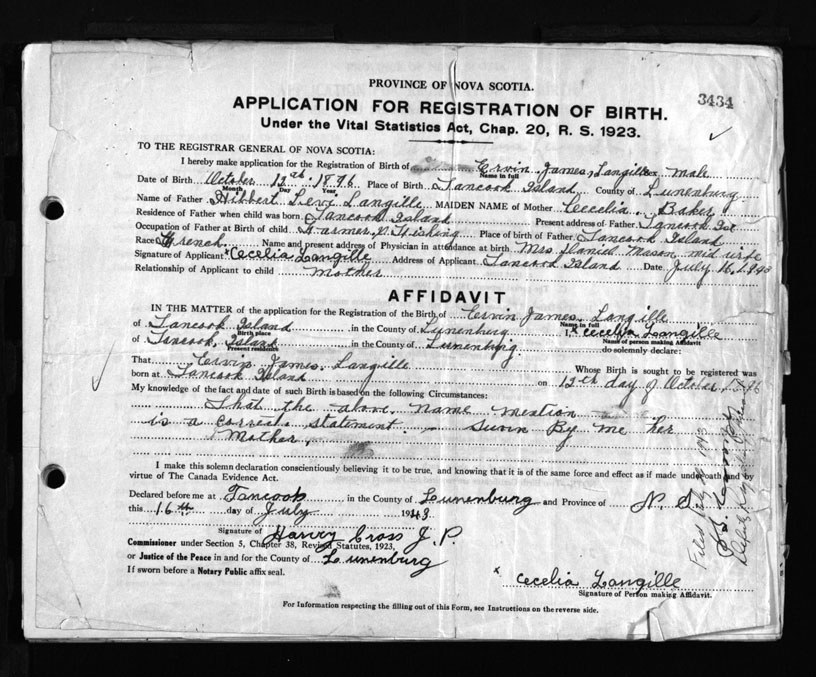 PROVINCE OF NOVA SCOTIA.
3434
APPLICATION FOR REGISTRATION OF BIRTH.
Under the Vital Statistics Act, Chap. 20, R. S. 1923.
TO THE REGISTRAR GENERAL OF NOVA SCOTIA:
I hereby make application for the Registration of Birth of Ervin James, Langille Sex male
Name in full
Date of Birth October 12th 1896 Place of Birth Tancook Island County of Lunenburg
Month Day Year
Name of Father Hibbert Levi Langille MAIDEN NAME of Mother Cecelia Baker
Residence of Father when child was born Tancook Island Present address of Father Tancook Isl
Occupation of Father at Birth of child Farmer & Fishing Place of birth of Father Tancook Island
Race French Name and present address of Physician in attendance at birth Mrs Daniel Mason mid wife
Signature of Applicant x Cecelia Langille Address of Applicant Tancook Island Date July 16, 1943
Relationship of Applicant to child Mother
AFFIDAVIT
IN THE MATTER of the application for the Registration of the Birth of Ervin James Langille
Name in full
of Tancook Island in the County of Lunenburg I, x Cecelia Langille
Birth place Name of person making Affidavit
of Tancook, Island in the County of Lunenburg do solemnly declare:
Present residence
That Ervin James Langille Whose Birth is sought to be registered was
born at Tancook Island on 12th day of October, 1896
My knowledge of the fact and date of such Birth is based on the following Circumstances:
That the above name mention
is a correct statement. Suvin By me her
Mother.
I make this solemn declaration conscientiously believing it to be true, and knowing that it is of the same force and effect as if made under oath and by
virtue of The Canada Evidence Act.
Declared before me at Tancook in the County of Lunenburg and Province of N. S.
this 16th day of July 1943.
Signature of Harvey Cross J. P.
Commissioner under Section 5, Chapter 38, Revised Statutes, 1923,
or Justice of the Peace in and for the County of Lunenburg
If sworn before a Notary Public affix seal.
x Cecelia Langille
Signature of Person making Affidavit.
For Information respecting the filling out of this Form, see Instructions on the reverse side.
Filed July